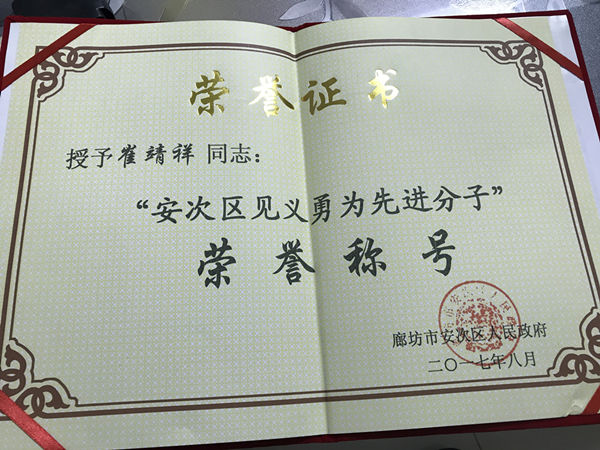 荣誉证书
授予崔靖祥 同志：
“安次区见义勇为先进分子”
荣誉称号
廊坊市安次区人民政府
二〇一七年八月